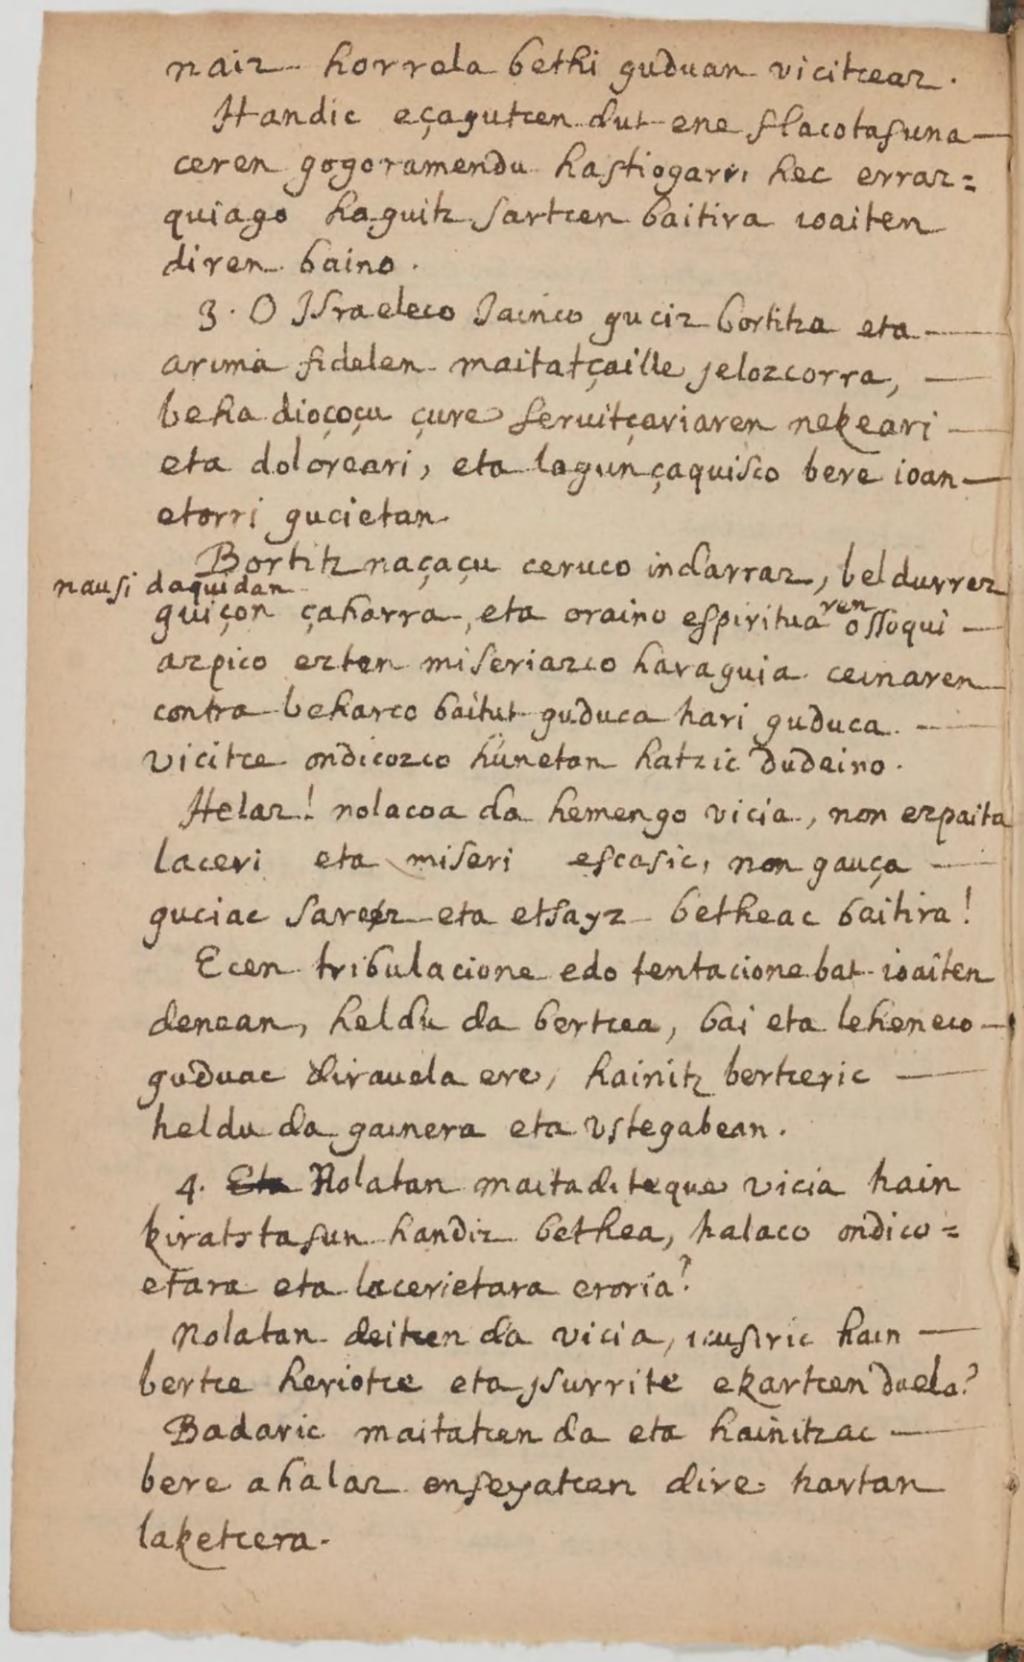 naiz horrela bethi guduan vicitceaz.
Handic eçagutcen dut ene flacotaſuna —
ceren gogoramendu haſtiogarri hec erraz=
quiago haguitz ſartcen baitira ioaiten
diren baino.
3. O Iſraeleco Iainco guciz bortitza eta —
arima fidelen maitatçaille jelozcorra, —
beha dioçoçu çure ſeruitçariaren nekeari —
eta doloreari, eta lagun çaquiſco bere ioan —
etorri gucietan.
Bortitz naçaçu ceruco indarraz, beldurrez
nauſi daquidan
guiçon çaharra, eta oraino eſpirituaren oſſoqui —
azpico ezten miſeriazco haraguia ceinaren
contra beharco baitut guduca hari guduca —
vicitce ondicozco hunetan hatzic dudeino.
Helaz! nolacoa da hemengo vicia, non ezpaita
laceri eta miſeri eſcaſic, non gauça —
guciac ſarez eta etſayz betheac baitira!
Ecen tribulacione edo tentacione bat ioaiten
denean, heldu da bertcea, bai eta leheneco —
guduac dirauela ere, hainitz bertceric —
heldu da gainera eta vſtegabean.
4. ~~Eta~~ Nolatan maita diteque vicia hain
kiratstaſun handiz bethea, halaco ondico=
etara eta lacerietara eroria?
Nolatan deitcen da vicia, icuſiric hain —
bertce heriotce eta jſurrite ekartcen duela?
Badaric maitatcen da eta hainitzac —
bere ahalaz enſeyatcen dire hartan
laketcera.